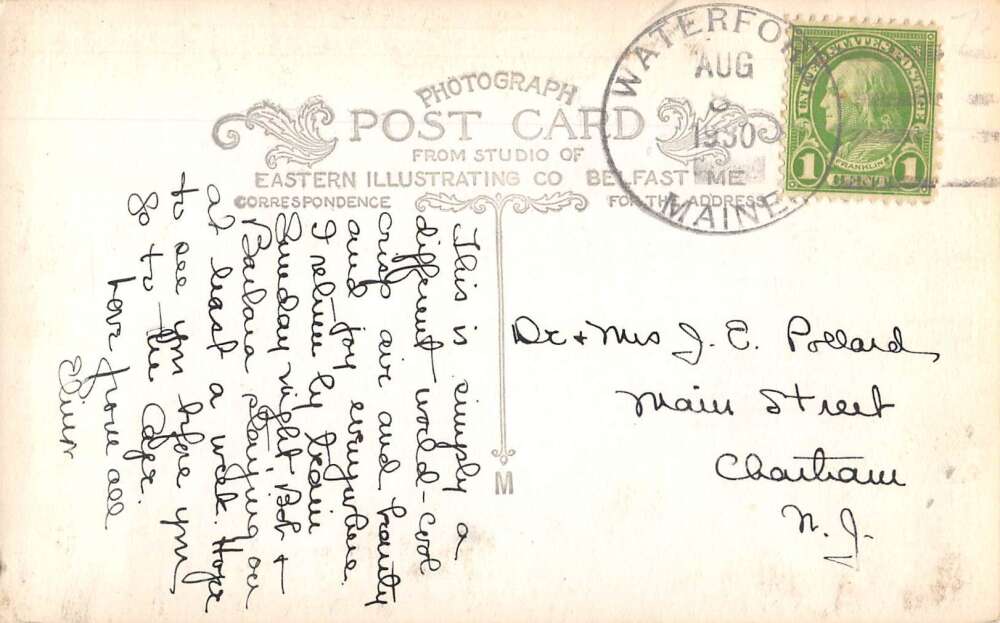 PHOTOGRAPH
POST CARD
FROM STUDIO OF
EASTERN ILLUSTRATING CO BELFAST ME
CORRESPONDENCE
FOR THE ADDRESS
WATERFORD
AUG
1930
MAINE
UNITED STATES POSTAGE
FRANKLIN
1 CENT 1
This is simply a
different world - cool
crisp air and beauty
and joy everywhere
I return by train
Sunday night Bob +
Barbara staying on
at least a week. Hope
to see you before you
go to the Cape.
Love from all
M
Dr + Mrs J. E. Pollard,
Main Street
Chatham
N. J.